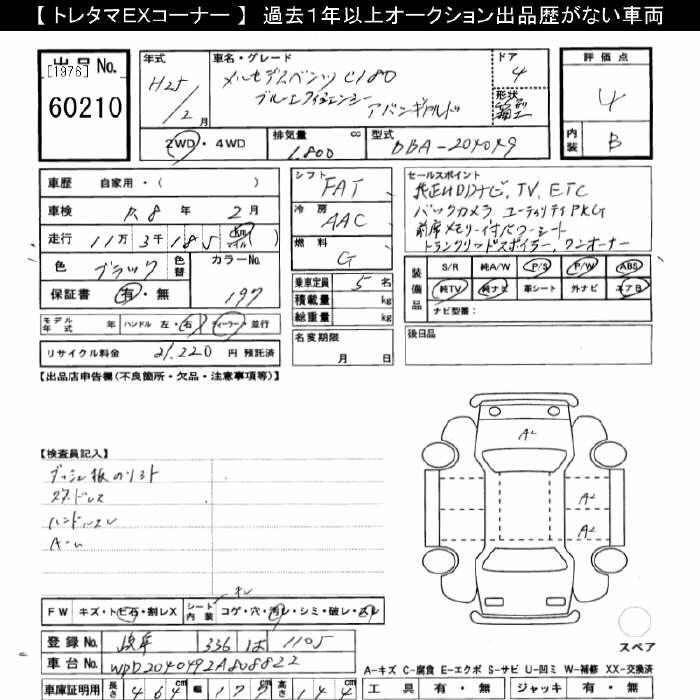 【 トレタマEXコーナー 】 過去1年以上オークション出品歴がない車両
出品 No.
[1976]
60210
年式
H25/2月
車名・グレード
メルセデスベンツ C180
ブルーエフィシェンシー
アバンギャルド
ドア
4
形状
箱型
評価点
4
内装
B
2WD・4WD
排気量 cc
1.800
型式
DBA-204049
車歴 自家用・( )
車検 R8年 2月
走行 11万3千185 (km マイル)
色 ブラック
色替
カラーNo.
197
保証書 有・無
シフト
FAT
冷房
AAC
燃料
G
乗車定員 5名
積載量 kg
総重量 kg
セールスポイント
純正HDDナビ、TV、ETC
バックカメラ ユーティリティPKG
前席メモリー付パワーシート
トランクリッドスポイラー、ワンオーナー
装備品
S/R 純A/W P/S P/W ABS
純TV 純ナビ 革シート 外ナビ エアB
ナビ型番:
モデル年式 年 ハンドル 左・右 ディーラー・並行
リサイクル料金 21,220 円 預託済
名変期限
月 日
後日品
【出品店申告欄(不良箇所・欠品・注意事項等)】
【検査員記入】
ダッシュ板のソト
スタドレス
ハンドルスレ
A-ム
A2
A2
A2
スレ
FW キズ・トビ石・割レX シート内装 コゲ・穴・汚レ・シミ・破レ・スレ
スペア
登録 No. 岐阜 336 は 1105
車台 No. WDD2040492A808822
A-キズ C-腐食 E-エクボ S-サビ U-凹ミ W-補修 XX-交換済
車庫証明用 長さ 464cm 幅 177cm 高さ 144cm
工具 有・無 ジャッキ 有・無